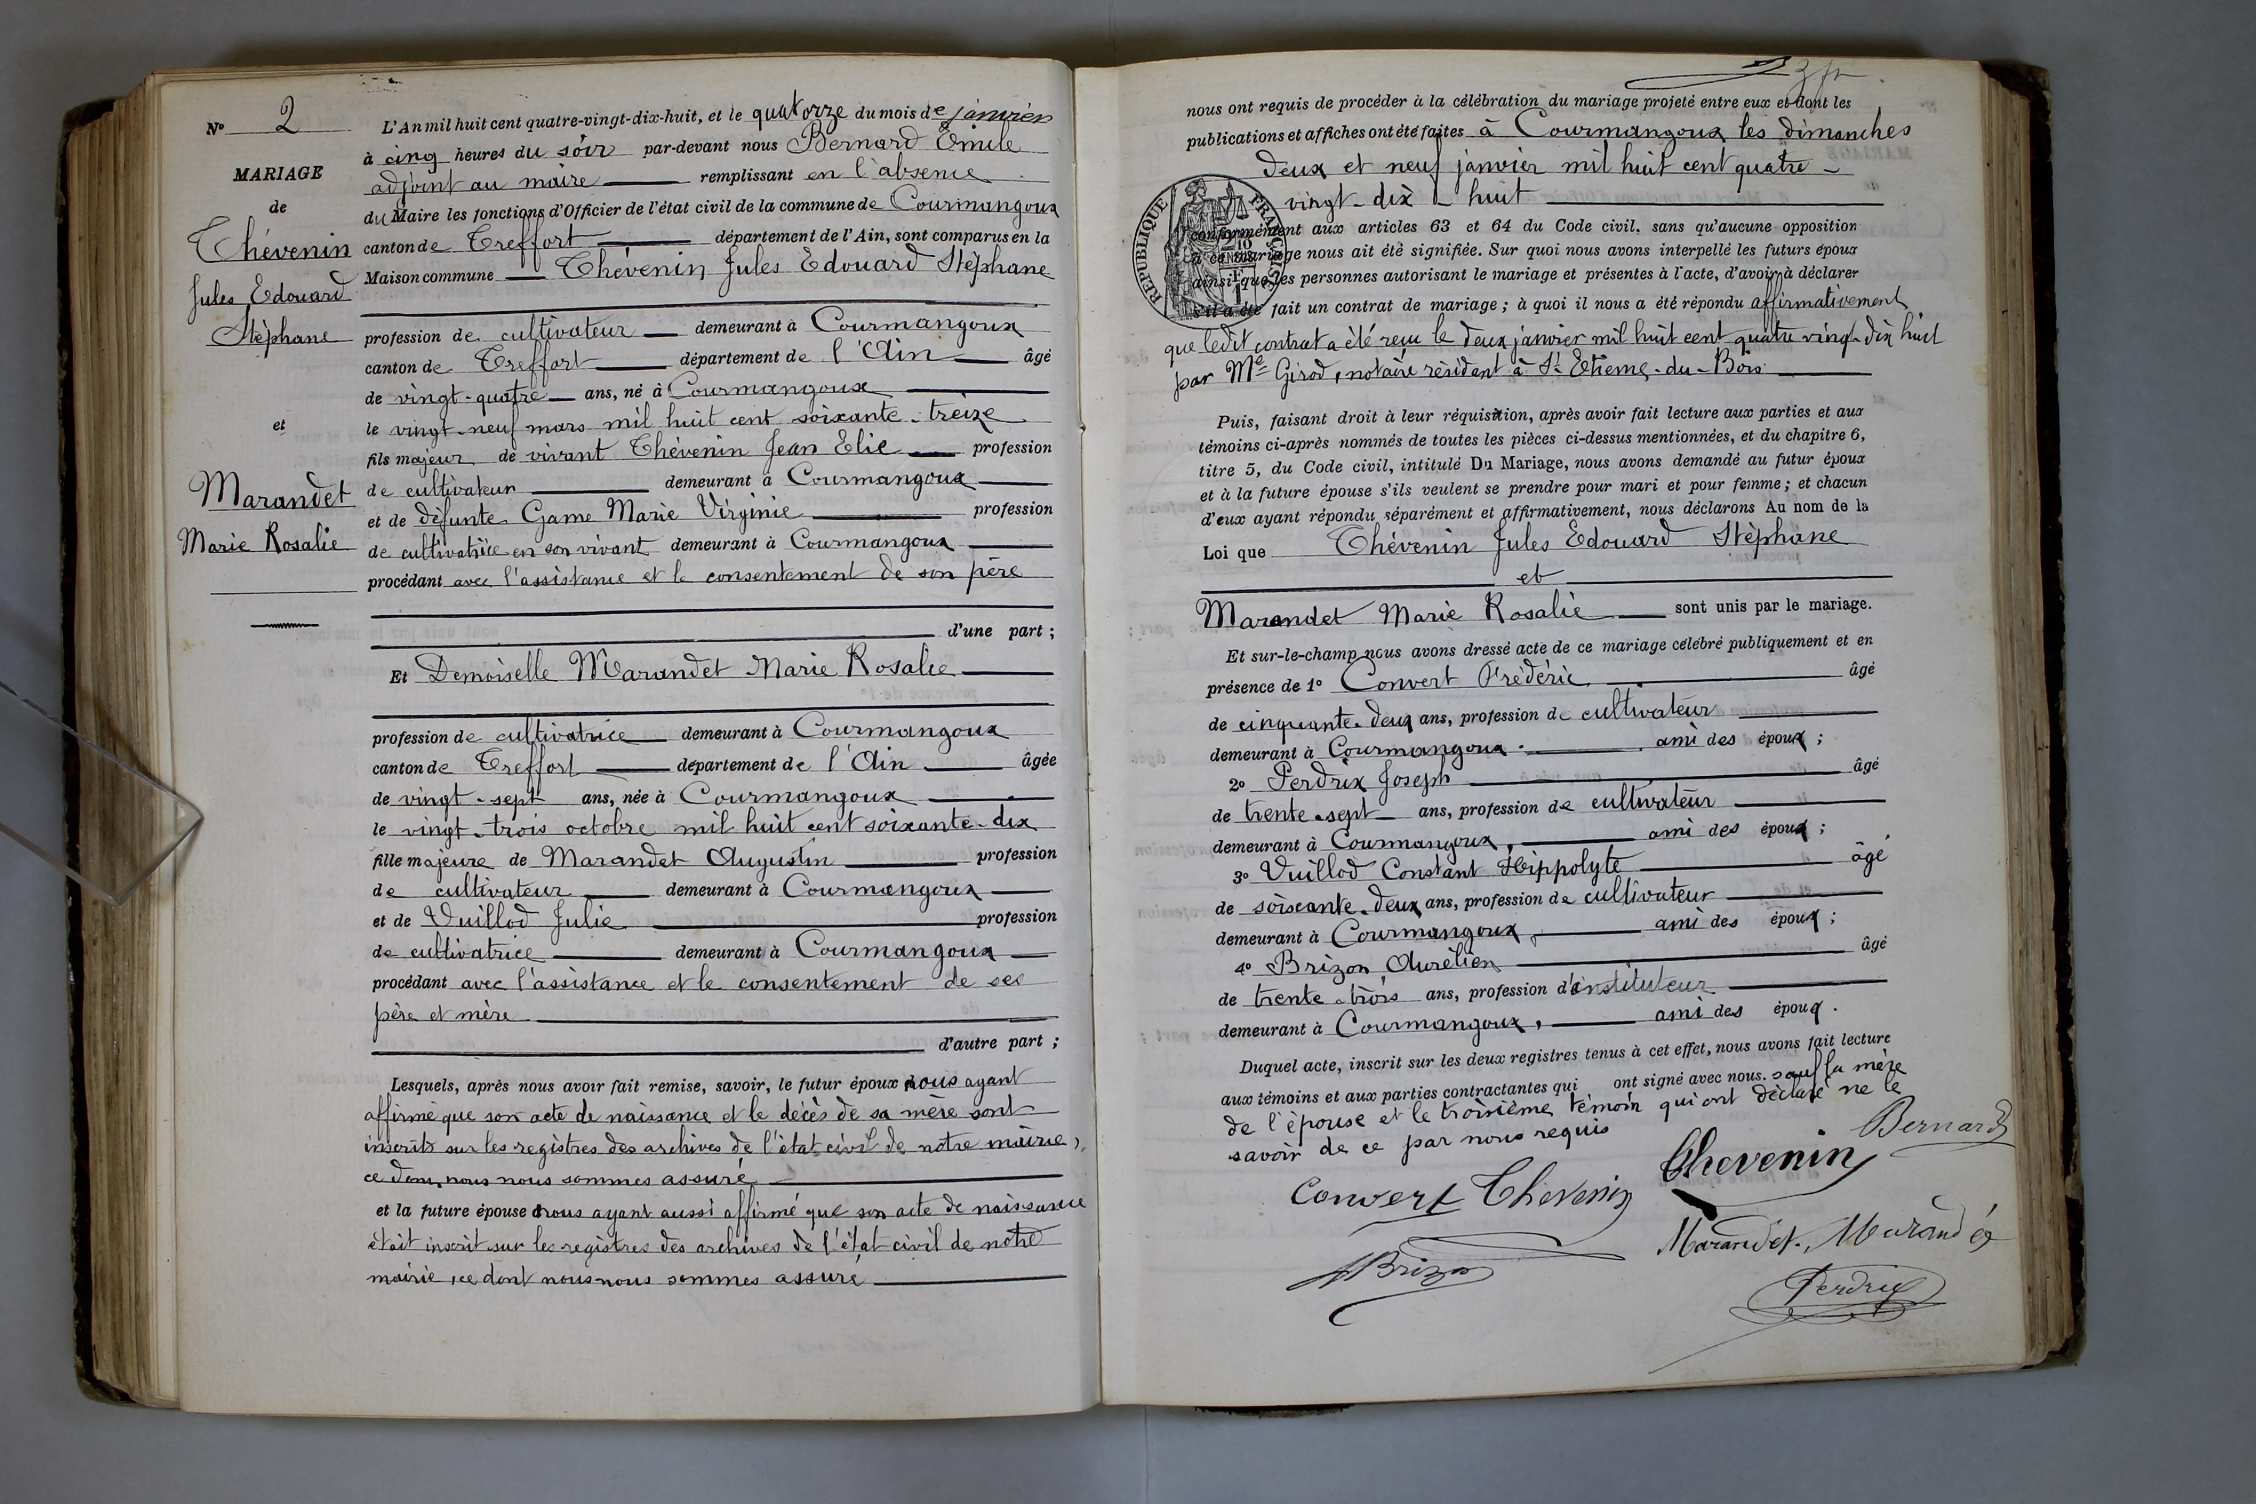 N° 2
MARIAGE
de
Thévenin
Jules Edouard
Stéphane
et
Marandet
Marie Rosalie
L'An mil huit cent quatre-vingt-dix-huit, et le quatorze du mois de janvier
à cinq heures du soir par-devant nous Bernard Emile
adjoint au maire remplissant en l'absence
du Maire les fonctions d'Officier de l'état civil de la commune de Courmangoux
canton de Treffort département de l'Ain, sont comparus en la
Maison commune Thévenin Jules Edouard Stéphane
profession de cultivateur demeurant à Courmangoux
canton de Treffort département de l'Ain âgé
de vingt-quatre ans, né à Courmangoux
le vingt-neuf mars mil huit cent soixante-treize
fils majeur de vivant Thévenin Jean Elie profession
de cultivateur demeurant à Courmangoux
et de défunte Game Marie Virginie profession
de cultivatrice en son vivant demeurant à Courmangoux
procédant avec l'assistance et le consentement de son père
d'une part ;
Et Demoiselle Marandet Marie Rosalie
profession de cultivatrice demeurant à Courmangoux
canton de Treffort département de l'Ain âgée
de vingt-sept ans, née à Courmangoux
le vingt-trois octobre mil huit cent soixante-dix
fille majeure de Marandet Augustin profession
de cultivateur demeurant à Courmangoux
et de Vuillod Julie profession
de cultivatrice demeurant à Courmangoux
procédant avec l'assistance et le consentement de ses
père et mère
d'autre part ;
Lesquels, après nous avoir fait remise, savoir, le futur époux nous ayant
affirmé que son acte de naissance et le décès de sa mère sont
inscrits sur les registres des archives de l'état civil de notre mairie,
ce dont nous nous sommes assuré
et la future épouse nous ayant aussi affirmé que son acte de naissance
était inscrit sur les registres des archives de l'état civil de notre
mairie, ce dont nous nous sommes assuré
nous ont requis de procéder à la célébration du mariage projeté entre eux et dont les
publications et affiches ont été faites à Courmangoux les dimanches
deux et neuf janvier mil huit cent quatre-
vingt-dix-huit
RÉPUBLIQUE FRANÇAISE
conformément aux articles 63 et 64 du Code civil, sans qu'aucune opposition
à ce mariage nous ait été signifiée. Sur quoi nous avons interpellé les futurs époux
ainsi que les personnes autorisant le mariage et présentes à l'acte, d'avoir à déclarer
s'il a été fait un contrat de mariage ; à quoi il nous a été répondu affirmativement
que ledit contrat a été reçu le deux janvier mil huit cent quatre vingt-dix huit
par Me Girod, notaire résident à St Etienne-du-Bois
Puis, faisant droit à leur réquisition, après avoir fait lecture aux parties et aux
témoins ci-après nommés de toutes les pièces ci-dessus mentionnées, et du chapitre 6,
titre 5, du Code civil, intitulé Du Mariage, nous avons demandé au futur époux
et à la future épouse s'ils veulent se prendre pour mari et pour femme ; et chacun
d'eux ayant répondu séparément et affirmativement, nous déclarons Au nom de la
Loi que Thévenin Jules Edouard Stéphane
et
Marandet Marie Rosalie sont unis par le mariage.
Et sur-le-champ nous avons dressé acte de ce mariage célébré publiquement et en
présence de 1° Convert Frédéric âgé
de cinquante-deux ans, profession de cultivateur
demeurant à Courmangoux ami des époux ;
2° Perdrix Joseph âgé
de trente-sept ans, profession de cultivateur
demeurant à Courmangoux, ami des époux ;
3° Vuillod Constant Hippolyte âgé
de soixante-deux ans, profession de cultivateur
demeurant à Courmangoux, ami des époux ;
4° Brizon Aurélien âgé
de trente-trois ans, profession d'instituteur
demeurant à Courmangoux, ami des époux.
Duquel acte, inscrit sur les deux registres tenus à cet effet, nous avons fait lecture
aux témoins et aux parties contractantes qui ont signé avec nous. sauf la mère
de l'épouse et le troisième témoin qui ont déclaré ne le
savoir de ce par nous requis
Bernard
Thevenin
Convert Thevenin
Marandet. Marandet
Brizon
Perdrix